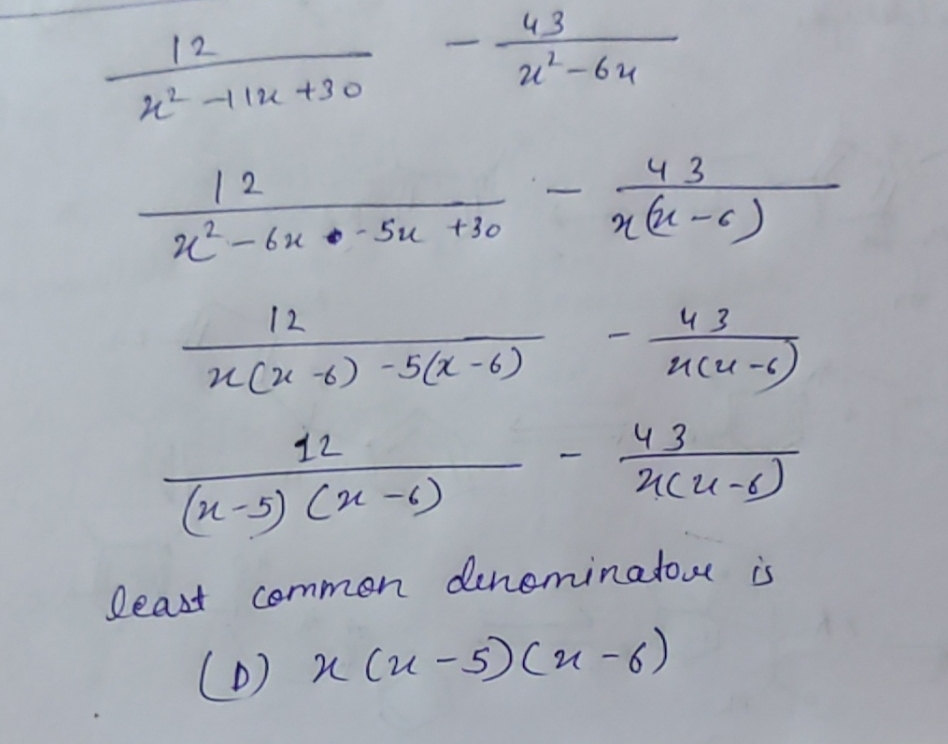 12/(x² - 11x + 30) - 43/(x² - 6x)
12/(x² - 6x - 5x + 30) - 43/(x(x - 6))
12/(x(x - 6) - 5(x - 6)) - 43/(x(x - 6))
12/((x - 5)(x - 6)) - 43/(x(x - 6))
least common denominatore is
(D) x(x - 5)(x - 6)